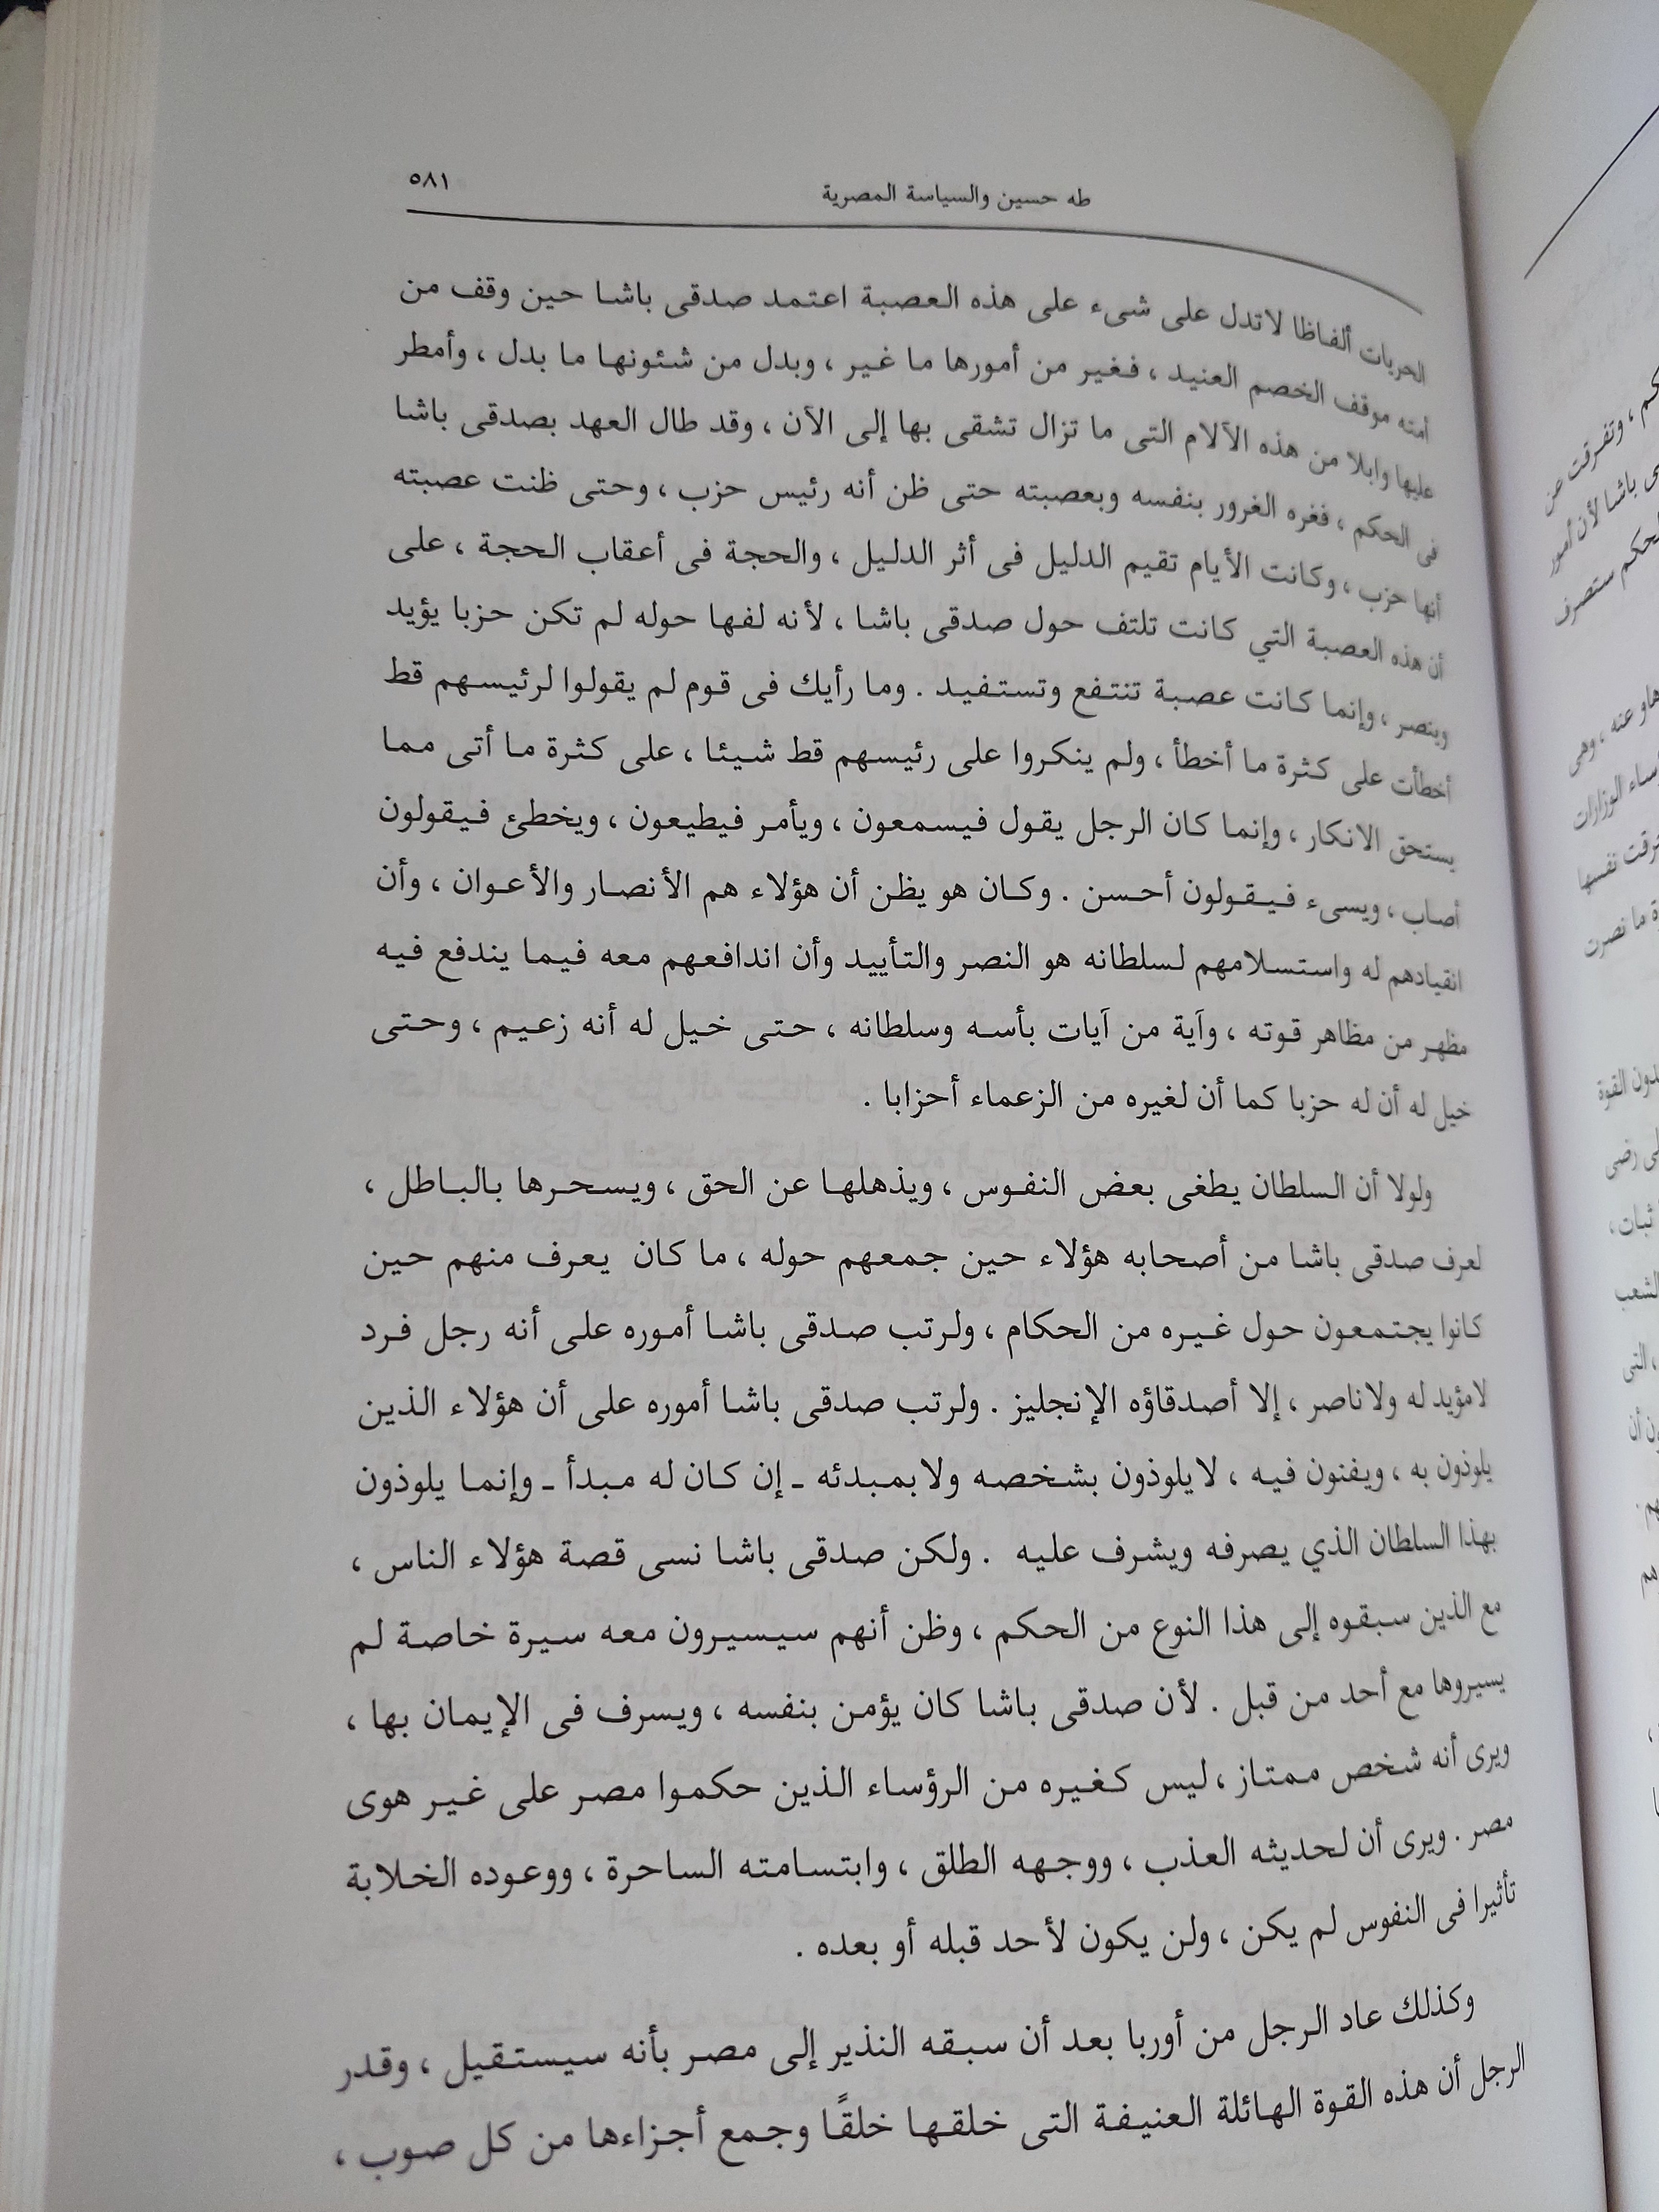 طه حسين والسياسة المصرية
٥٨١
الحريات ألفاظا لاتدل على شىء على هذه العصبة اعتمد صدقى باشا حين وقف من
أمته موقف الخصم العنيد ، فغير من أمورها ما غير ، وبدل من شئونها ما بدل ، وأمطر
عليها وابلا من هذه الآلام التى ما تزال تشقى بها إلى الآن ، وقد طال العهد بصدقى باشا
فى الحكم ، فغره الغرور بنفسه وبعصبته حتى ظن أنه رئيس حزب ، وحتى ظنت عصبته
أنها حزب ، وكانت الأيام تقيم الدليل فى أثر الدليل ، والحجة فى أعقاب الحجة ، على
أن هذه العصبة التي كانت تلتف حول صدقى باشا ، لأنه لفها حوله لم تكن حزبا يؤيد
وينصر ، وإنما كانت عصبة تنتفع وتستفيد . وما رأيك فى قوم لم يقولوا لرئيسهم قط
أخطأت على كثرة ما أخطأ ، ولم ينكروا على رئيسهم قط شيئا ، على كثرة ما أتى مما
يستحق الانكار ، وإنما كان الرجل يقول فيسمعون ، ويأمر فيطيعون ، ويخطئ فيقولون
أصاب ، ويسىء فيقولون أحسن . وكان هو يظن أن هؤلاء هم الأنصار والأعوان ، وأن
انقيادهم له واستسلامهم لسلطانه هو النصر والتأييد وأن اندافعهم معه فيما يندفع فيه
مظهر من مظاهر قوته ، وآية من آيات بأسه وسلطانه ، حتى خيل له أنه زعيم ، وحتى
خيل له أن له حزبا كما أن لغيره من الزعماء أحزابا .
ولولا أن السلطان يطغى بعض النفوس ، ويذهلها عن الحق ، ويسحرها بالباطل ،
لعرف صدقى باشا من أصحابه هؤلاء حين جمعهم حوله ، ما كان يعرف منهم حين
كانوا يجتمعون حول غيره من الحكام ، ولرتب صدقى باشا أموره على أنه رجل فرد
لامؤيد له ولاناصر ، إلا أصدقاؤه الإنجليز . ولرتب صدقى باشا أموره على أن هؤلاء الذين
يلوذون به ، ويفنون فيه ، لايلوذون بشخصه ولابمبدئه ـ إن كان له مبدأ ـ وإنما يلوذون
بهذا السلطان الذي يصرفه ويشرف عليه . ولكن صدقى باشا نسى قصة هؤلاء الناس ،
مع الذين سبقوه إلى هذا النوع من الحكم ، وظن أنهم سيسيرون معه سيرة خاصة لم
يسيروها مع أحد من قبل . لأن صدقى باشا كان يؤمن بنفسه ، ويسرف فى الإيمان بها ،
ويرى أنه شخص ممتاز ، ليس كغيره من الرؤساء الذين حكموا مصر على غير هوى
مصر . ويرى أن لحديثه العذب ، ووجهه الطلق ، وابتسامته الساحرة ، ووعوده الخلابة
تأثيرا فى النفوس لم يكن ، ولن يكون لأحد قبله أو بعده .
وكذلك عاد الرجل من أوربا بعد أن سبقه النذير إلى مصر بأنه سيستقيل ، وقدر
الرجل أن هذه القوة الهائلة العنيفة التى خلقها خلقًا وجمع أجزاءها من كل صوب ،